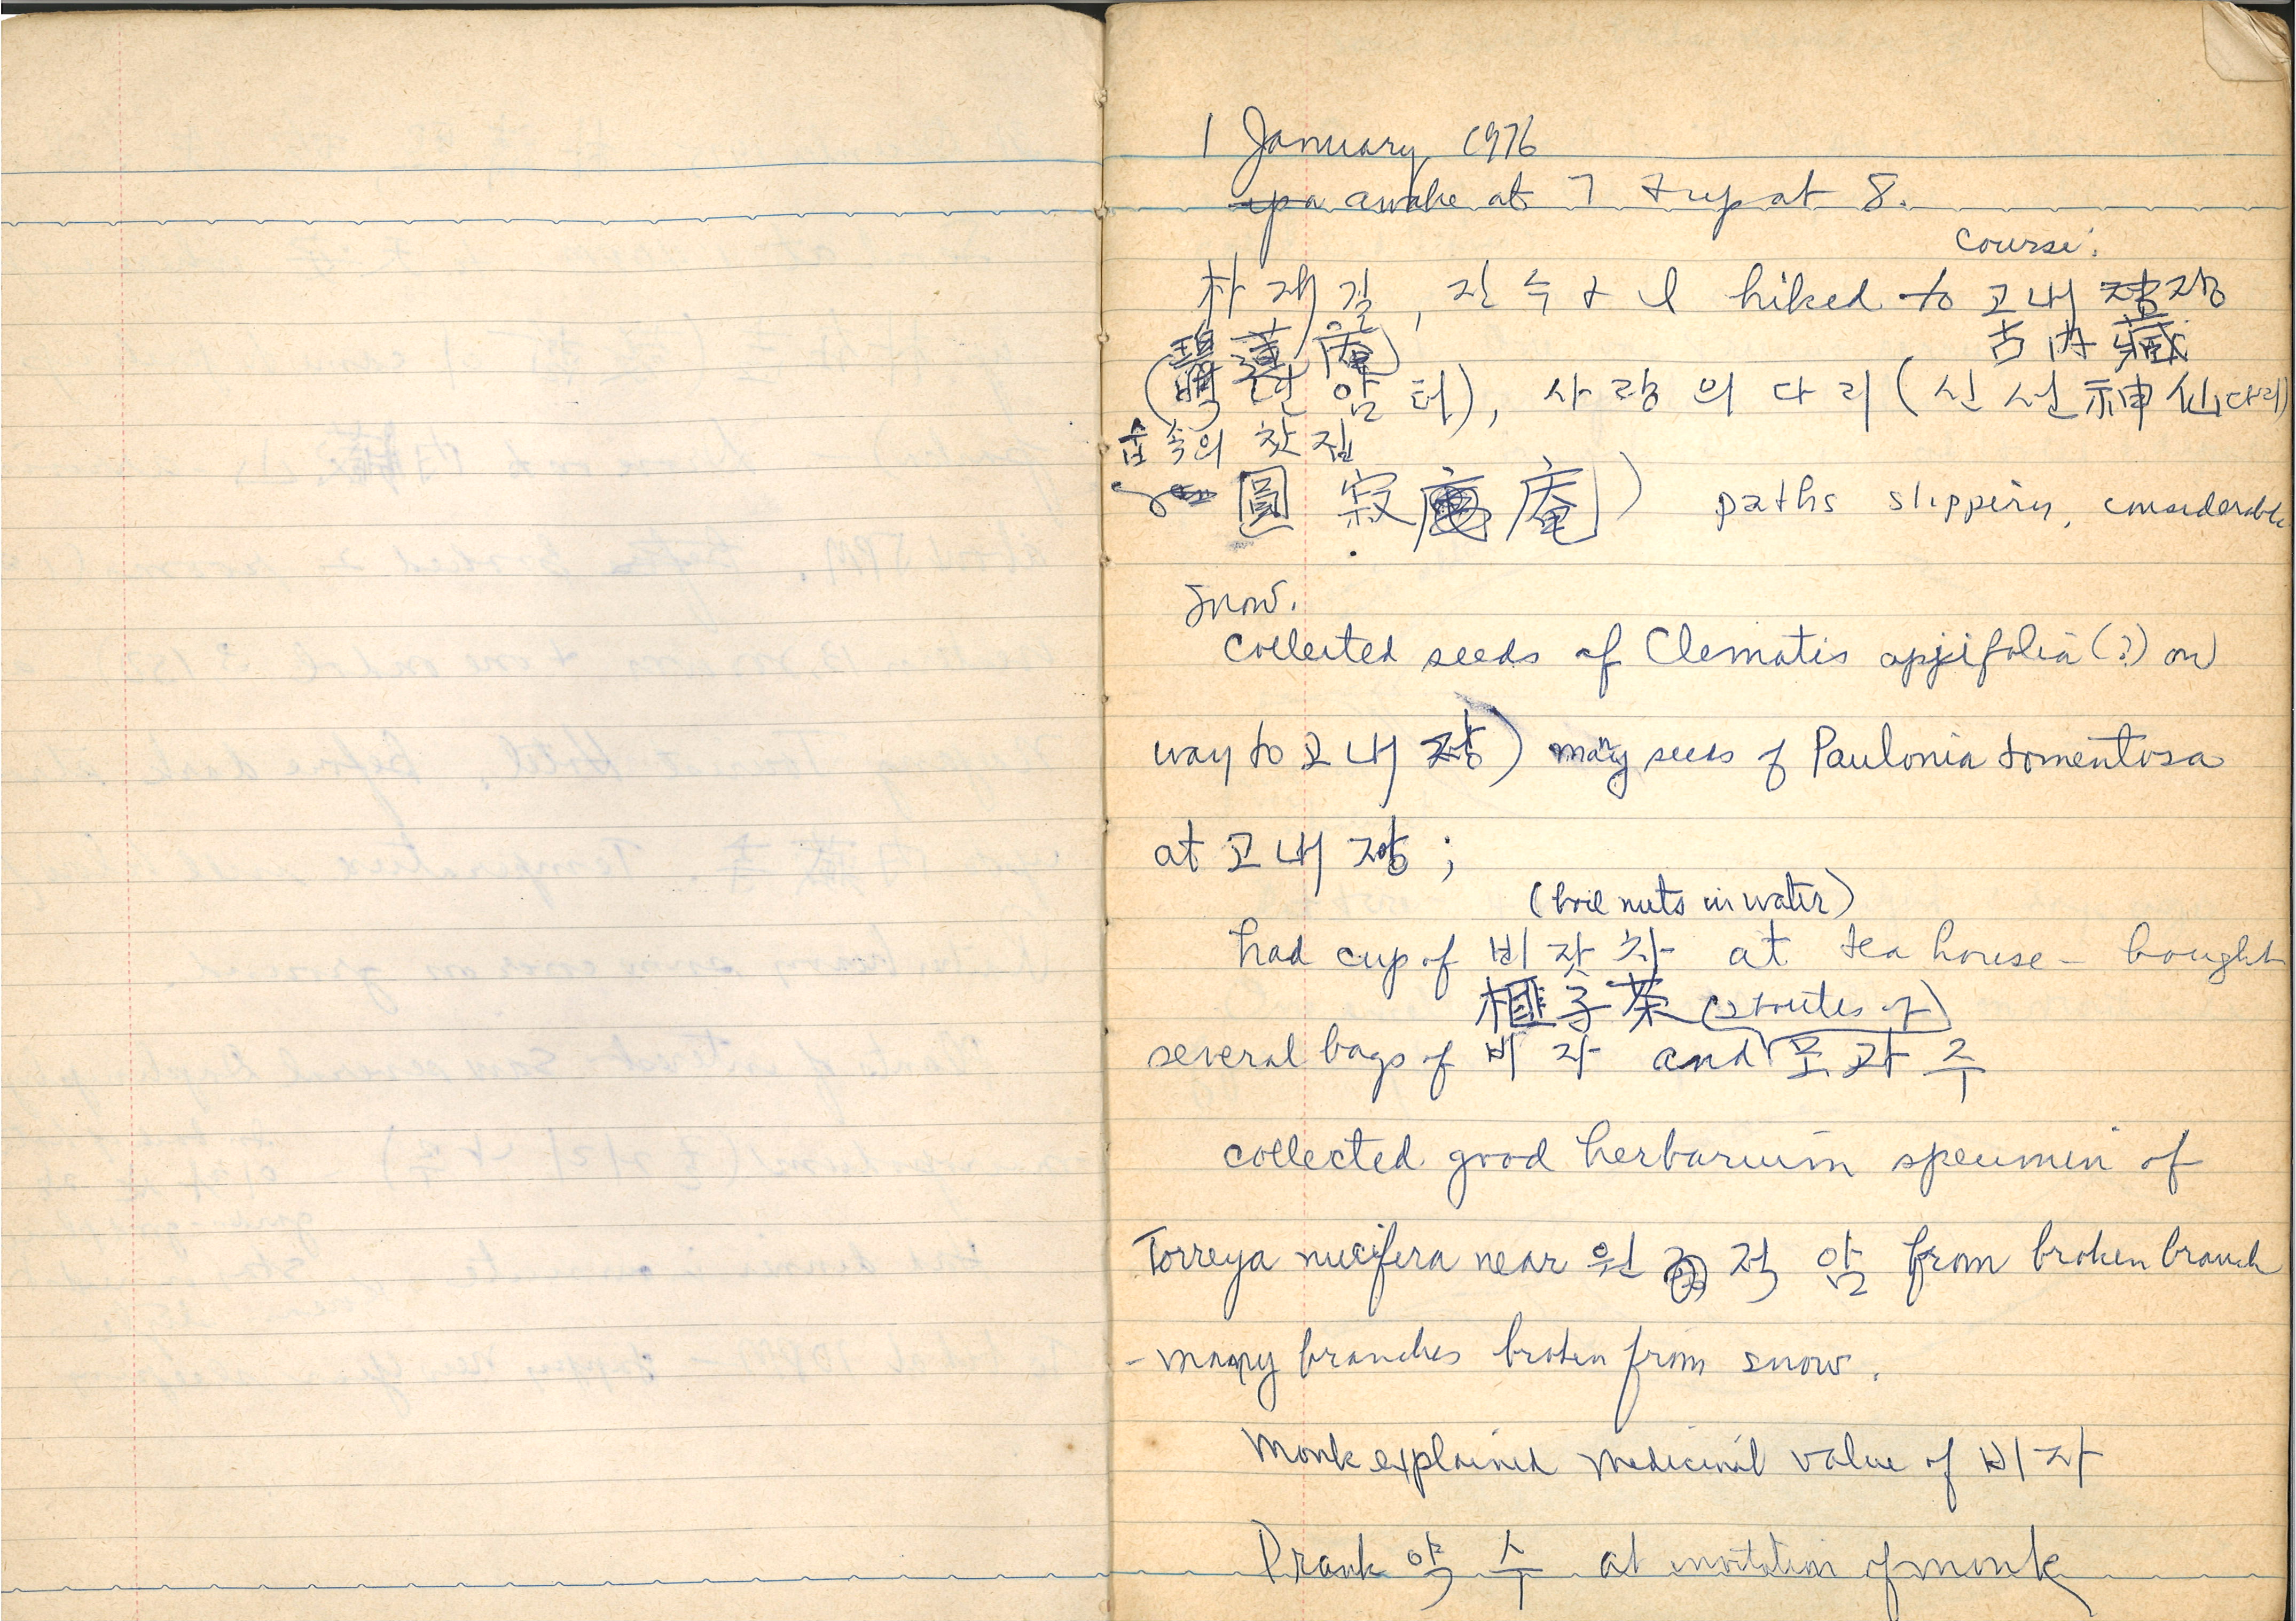 1 January, 1976
awake at 7 + up at 8.
course:
朴재길, 진수 + I hiked to 고내장
古內藏
碧蓮庵
(벽련암터), 사랑의 다리 (신선神仙다리)
숲속의 찻집
圓寂庵) paths slippery, considerable
snow.
collected seeds of Clematis apiifolia (?) on
way to 고내장) many seeds of Paulonia tomentosa
at 고내장;
(boil nuts in water)
had cup of 비자차 at tea house – bought
榧子茶 (2 bottles of)
several bags of 비자 and 모과주
collected good herbarium specimen of
Torreya nucifera near 원적암 from broken branch
- many branches broken from snow.
Monk explained medicinal value of 비자
Drank 약수 at invitation of monk